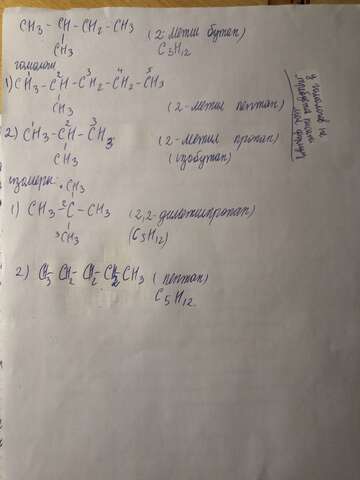 CH₃ - CH - CH₂ - CH₃ (2-метил бутан)
CH₃ C₅H₁₂
гомологи
1) CH₃ - CH - CH₂ - CH₂ - CH₃
2 3 4 5
CH₃ (2-метил пентан)
2) CH₃ - CH - CH₃ (2-метил пропан)
1 2 3
CH₃ (изобутан)
изомеры:
CH₃
1) CH₃ - C - CH₃ (2,2-диметилпропан)
2
3 CH₃ (C₅H₁₂)
2) CH₃ - CH₂ - CH₂ - CH₂ CH₃ (пентан)
C₅H₁₂
у гомологов не